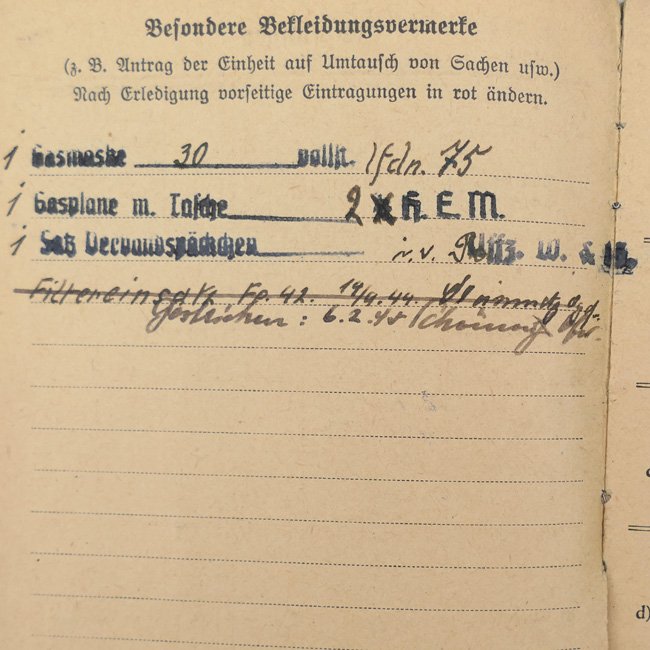 Besondere Bekleidungsvermerke
(z. B. Antrag der Einheit auf Umtausch von Sachen usw.)
Nach Erledigung vorseitige Eintragungen in rot ändern.
1 Gasmaske 30 vollst. lfdn. 75
1 Gasplane m. Tasche 2 X H. E. M.
1 Satz Verbandspäckchen i. v. Uffz. W. &
Filtereinsatz Fe. 42. 14/9. 44.
Gestrichen: 6.2.45
d)